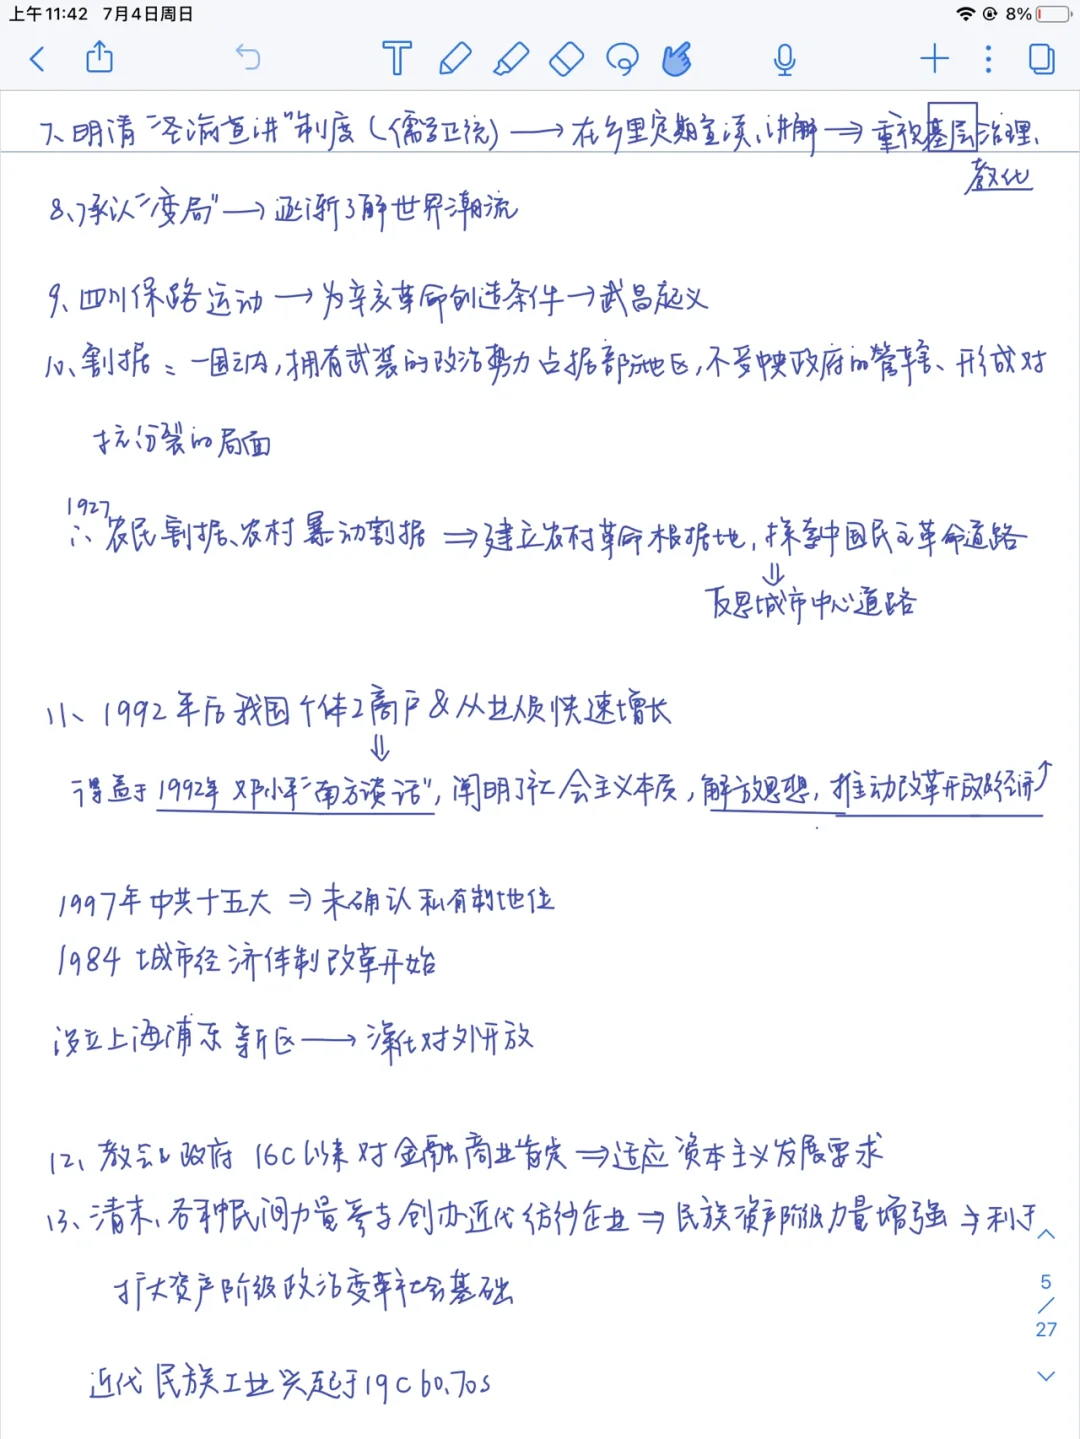 上午11:42 7月4日周日
8%
7、明清"圣谕宣讲"制度(儒学正统)→在乡里定期宣读、讲解⇒重视基层治理、
教化
8、承认"变局"→逐渐了解世界潮流
9、四川保路运动→为辛亥革命创造条件→武昌起义
10、割据:一国之内,拥有武装的政治势力占据部分地区,不受中央政府的管辖、形成对
抗分裂的局面
1927
∴农民割据、农村暴动割据⇒建立农村革命根据地,探索中国民主革命道路
⇓
反思城市中心道路
11、1992年后我国个体工商户&从业人员快速增长
⇓
得益于1992年邓小平"南方谈话",阐明了社会主义本质,解放思想,推动改革开放&经济↑
1997年中共十五大⇒未确认私有制地位
1984 城市经济体制改革开始
设立上海浦东新区→深化对外开放
12、教会&政府16C以来对金融商业肯定⇒适应资本主义发展要求
13、清末、各种民间力量参与创办近代纺纱企业⇒民族资产阶级力量增强⇒利于
扩大资产阶级政治变革社会基础
近代民族工业兴起于19C60、70s
5
/
27